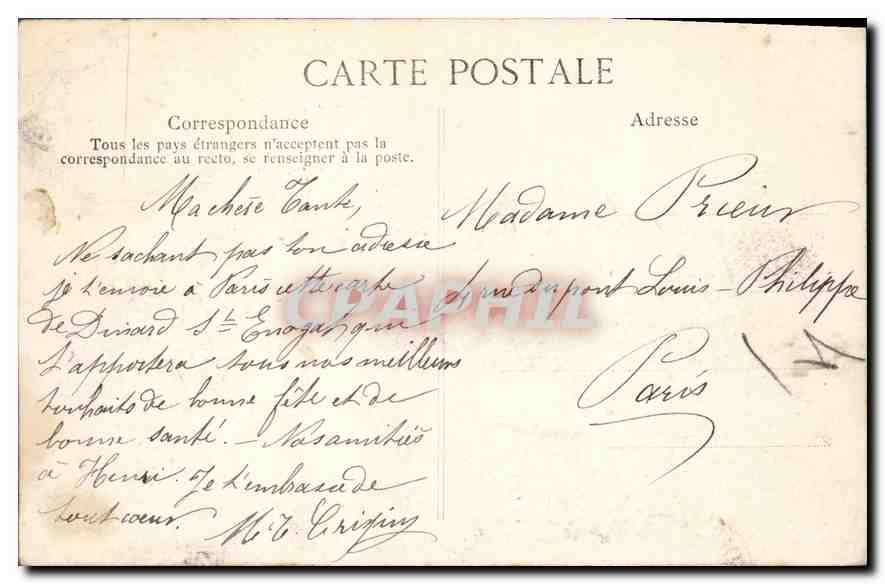 CARTE POSTALE
Correspondance
Tous les pays étrangers n'acceptent pas la
correspondance au recto, se renseigner à la poste.
Ma chère Tante,
Ne sachant pas ton adresse
je t'envoie à Paris cette carte
de Dinard St Enogat que
t'apportera tous nos meilleurs
souhaits de bonne fête et de
bonne santé. — Nos amitiés
à Henri. Je t'embrasse de
tout coeur.
M. T.
Adresse
Madame Prieur
rue du pont Louis-Philippe
Paris
CPAPHIL